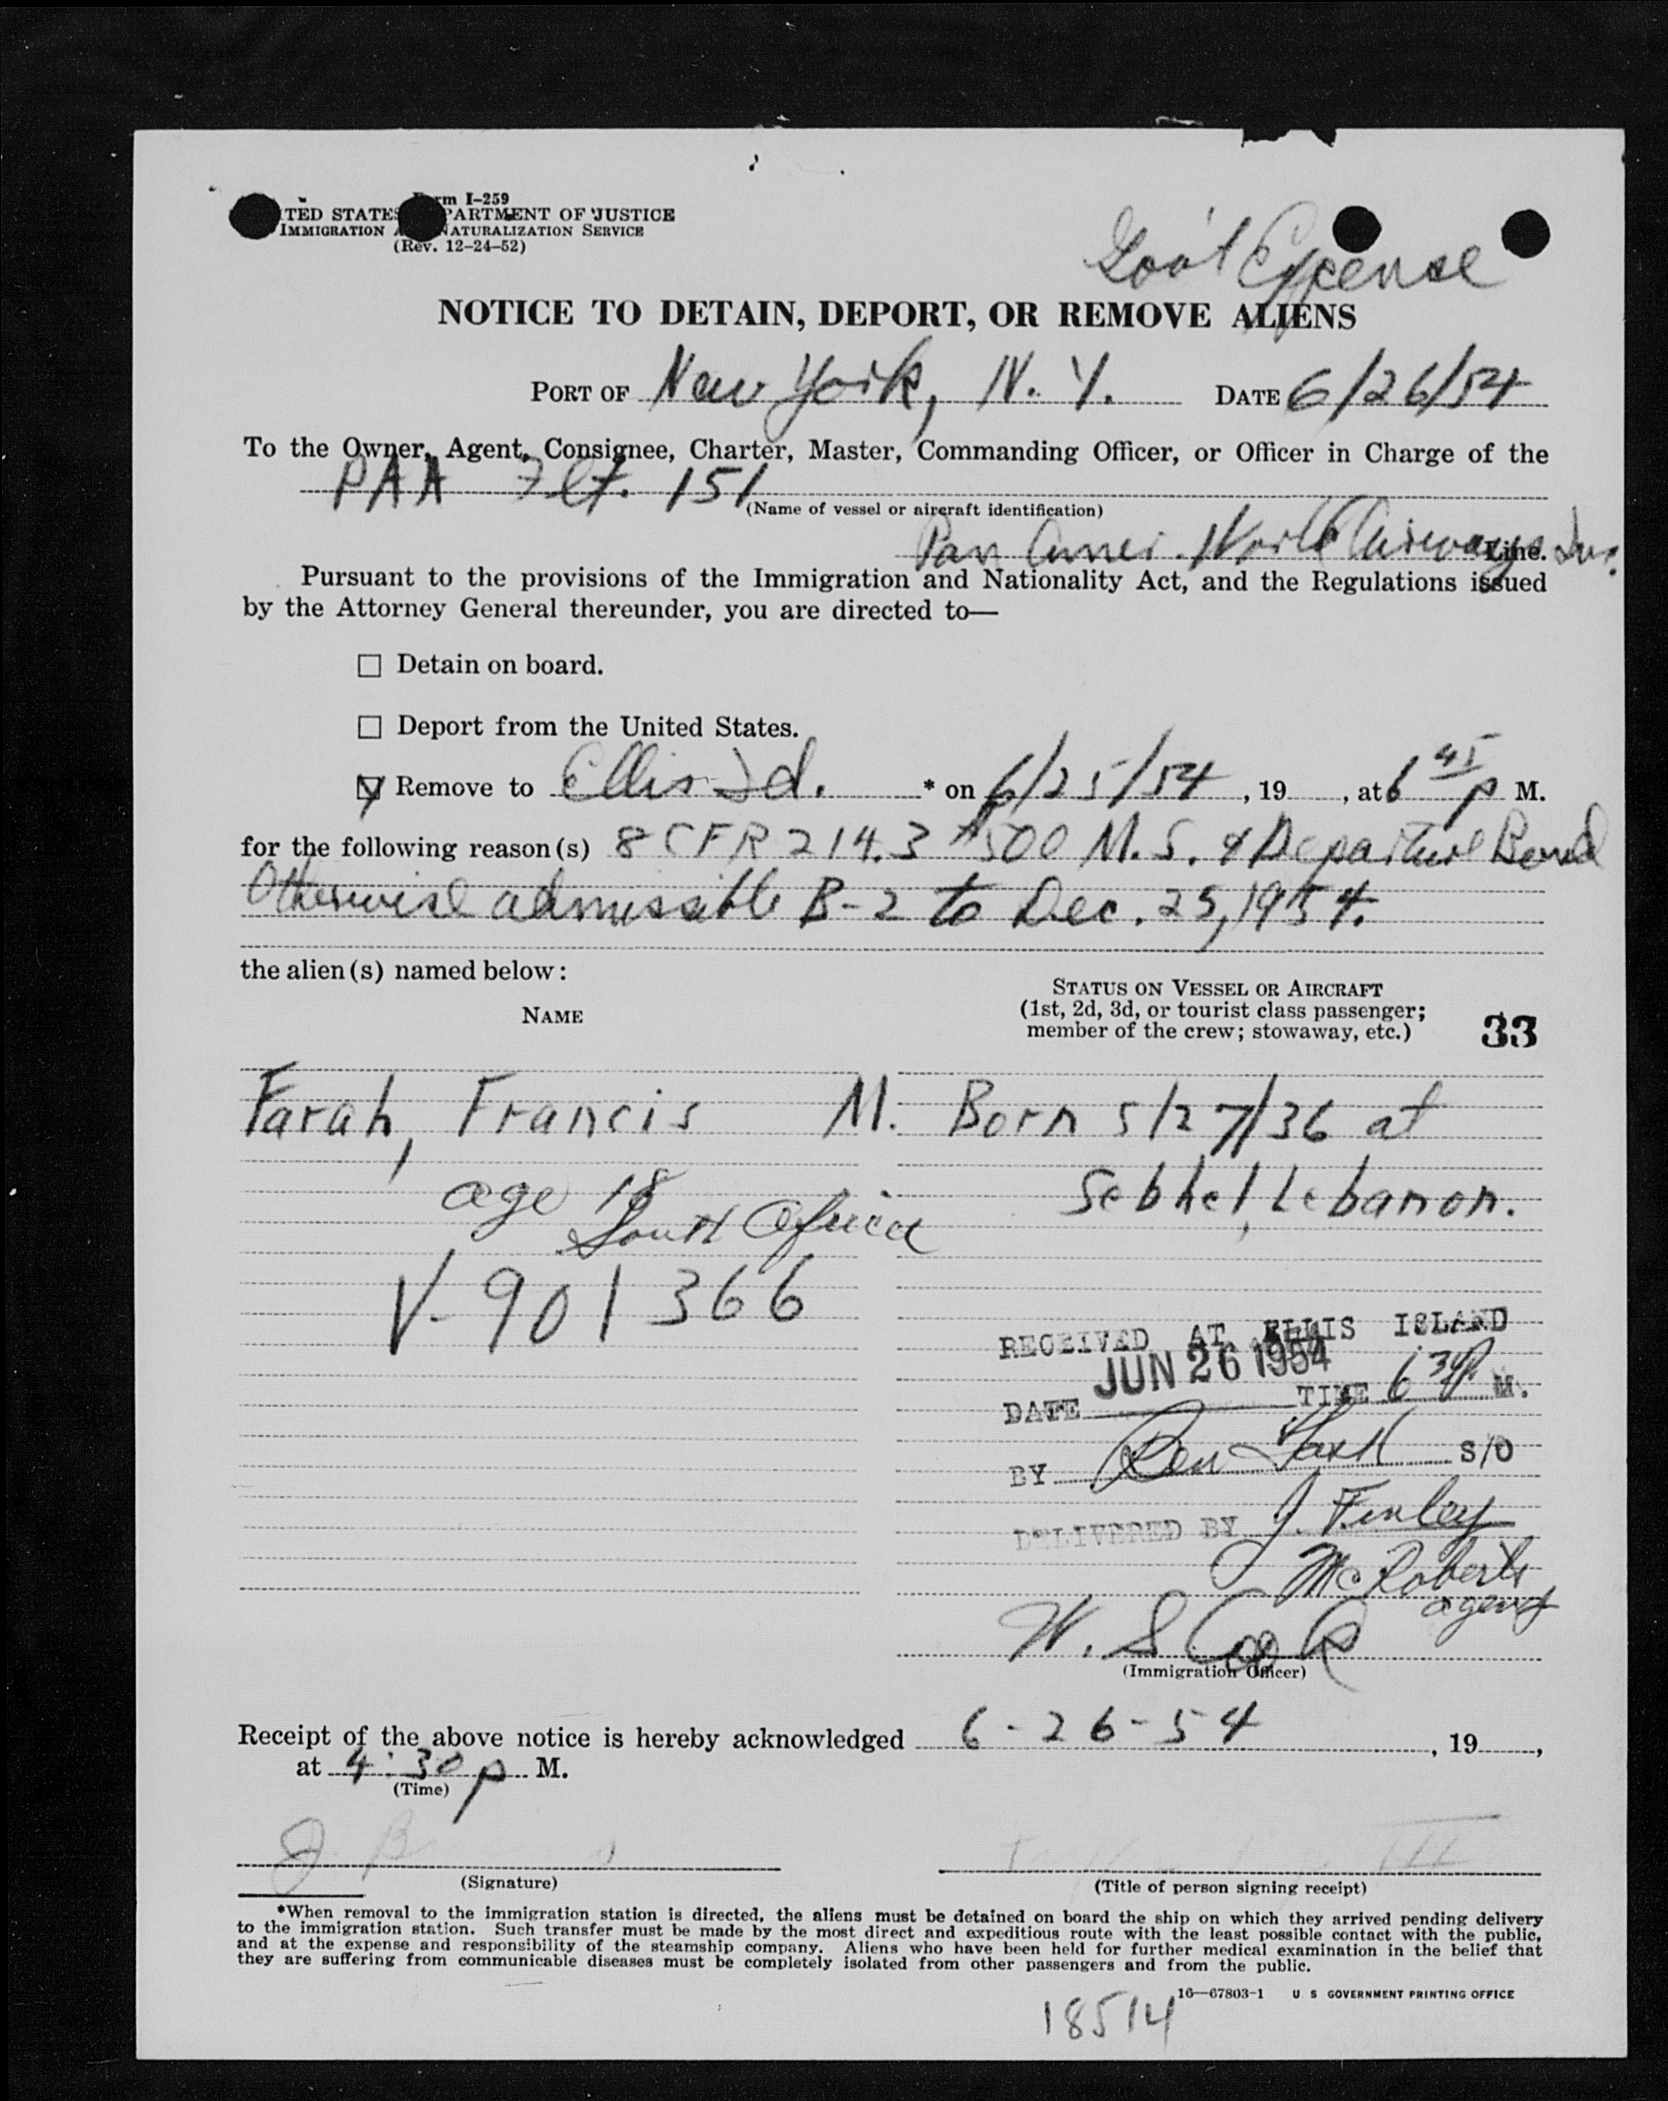 Form I-259
UNITED STATES DEPARTMENT OF JUSTICE
IMMIGRATION AND NATURALIZATION SERVICE
(Rev. 12-24-52)
Gov't Expense
NOTICE TO DETAIN, DEPORT, OR REMOVE ALIENS
PORT OF New York, N. Y. DATE 6/26/54
To the Owner, Agent, Consignee, Charter, Master, Commanding Officer, or Officer in Charge of the
PAA Flt. 151
(Name of vessel or aircraft identification)
Pan Amer. World Airways Inc. Line.
Pursuant to the provisions of the Immigration and Nationality Act, and the Regulations issued
by the Attorney General thereunder, you are directed to—
☐ Detain on board.
☐ Deport from the United States.
☑ Remove to Ellis Id. * on 6/25/54, 19 , at 6 45 p M.
for the following reason(s) 8 CFR 214.3 $500 M.S. & Departure Bond
Otherwise admissible B-2 to Dec. 25, 1954.
the alien(s) named below:
NAME
STATUS ON VESSEL OR AIRCRAFT
(1st, 2d, 3d, or tourist class passenger;
member of the crew; stowaway, etc.)
33
Farah, Francis M. Born 5/27/36 at
age 18 Sebhel, Lebanon.
South Africa
V-901366
RECEIVED AT ELLIS ISLAND
JUN 26 1954
DATE TIME 6 30 P M.
BY Ben S/O
DELIVERED BY J. Finley
McRoberts
agent
W. S Cook
(Immigration Officer)
Receipt of the above notice is hereby acknowledged 6-26-54, 19 ,
at 4:30 p M.
(Time)
J. B
(Signature)
(Title of person signing receipt)
*When removal to the immigration station is directed, the aliens must be detained on board the ship on which they arrived pending delivery
to the immigration station. Such transfer must be made by the most direct and expeditious route with the least possible contact with the public,
and at the expense and responsibility of the steamship company. Aliens who have been held for further medical examination in the belief that
they are suffering from communicable diseases must be completely isolated from other passengers and from the public.
16—67803-1 U S GOVERNMENT PRINTING OFFICE
18514